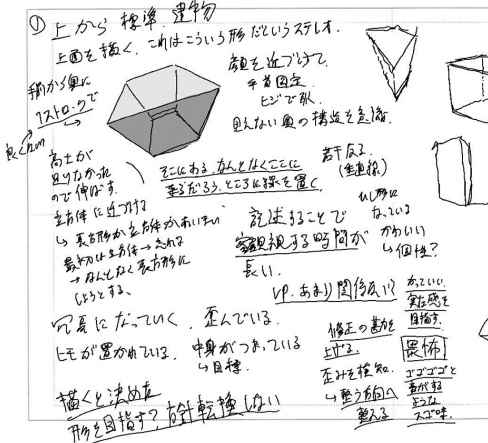 ① 上から 標準. 建物
上面を描く. これはこういう形だというステレオ.
手前から奥に
1ストロークで
良く見れ
顔を近づけて
手首固定.
ヒジで引く.
見えない奥の構造を意識.
高さが
足りなかった
ので伸ばす.
立方体に近づける
↳ 長方形か立方体かあいまい
最初は立方体→
→なんとなく長方形に
しようとする.
そこにある. なんとなくここに
来るだろう. ところに線を置く
若干反る.
(垂直線)
ひし形に
なっている
かわいい
↳ 個性?
記述することで
客観視する時間が
長い.
VP. あまり関係ない?
冗長になっていく. 歪んでいる.
ヒモが置かれている.
中身がつまっている
↳ 目標.
修正の勘を
上げる.
歪みを検知.
↳ 整う方向へ
整える
かっこいい.
実在感を
目指す.
畏怖
ゴゴゴゴと
音がする
ような
スゴ味.
描くと決めた
形を目指す? 方針転換しない